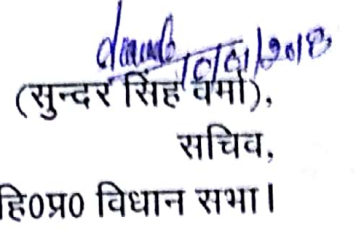 (सुन्दर सिंह वर्मा),
सचिव,
हि०प्र० विधान सभा।